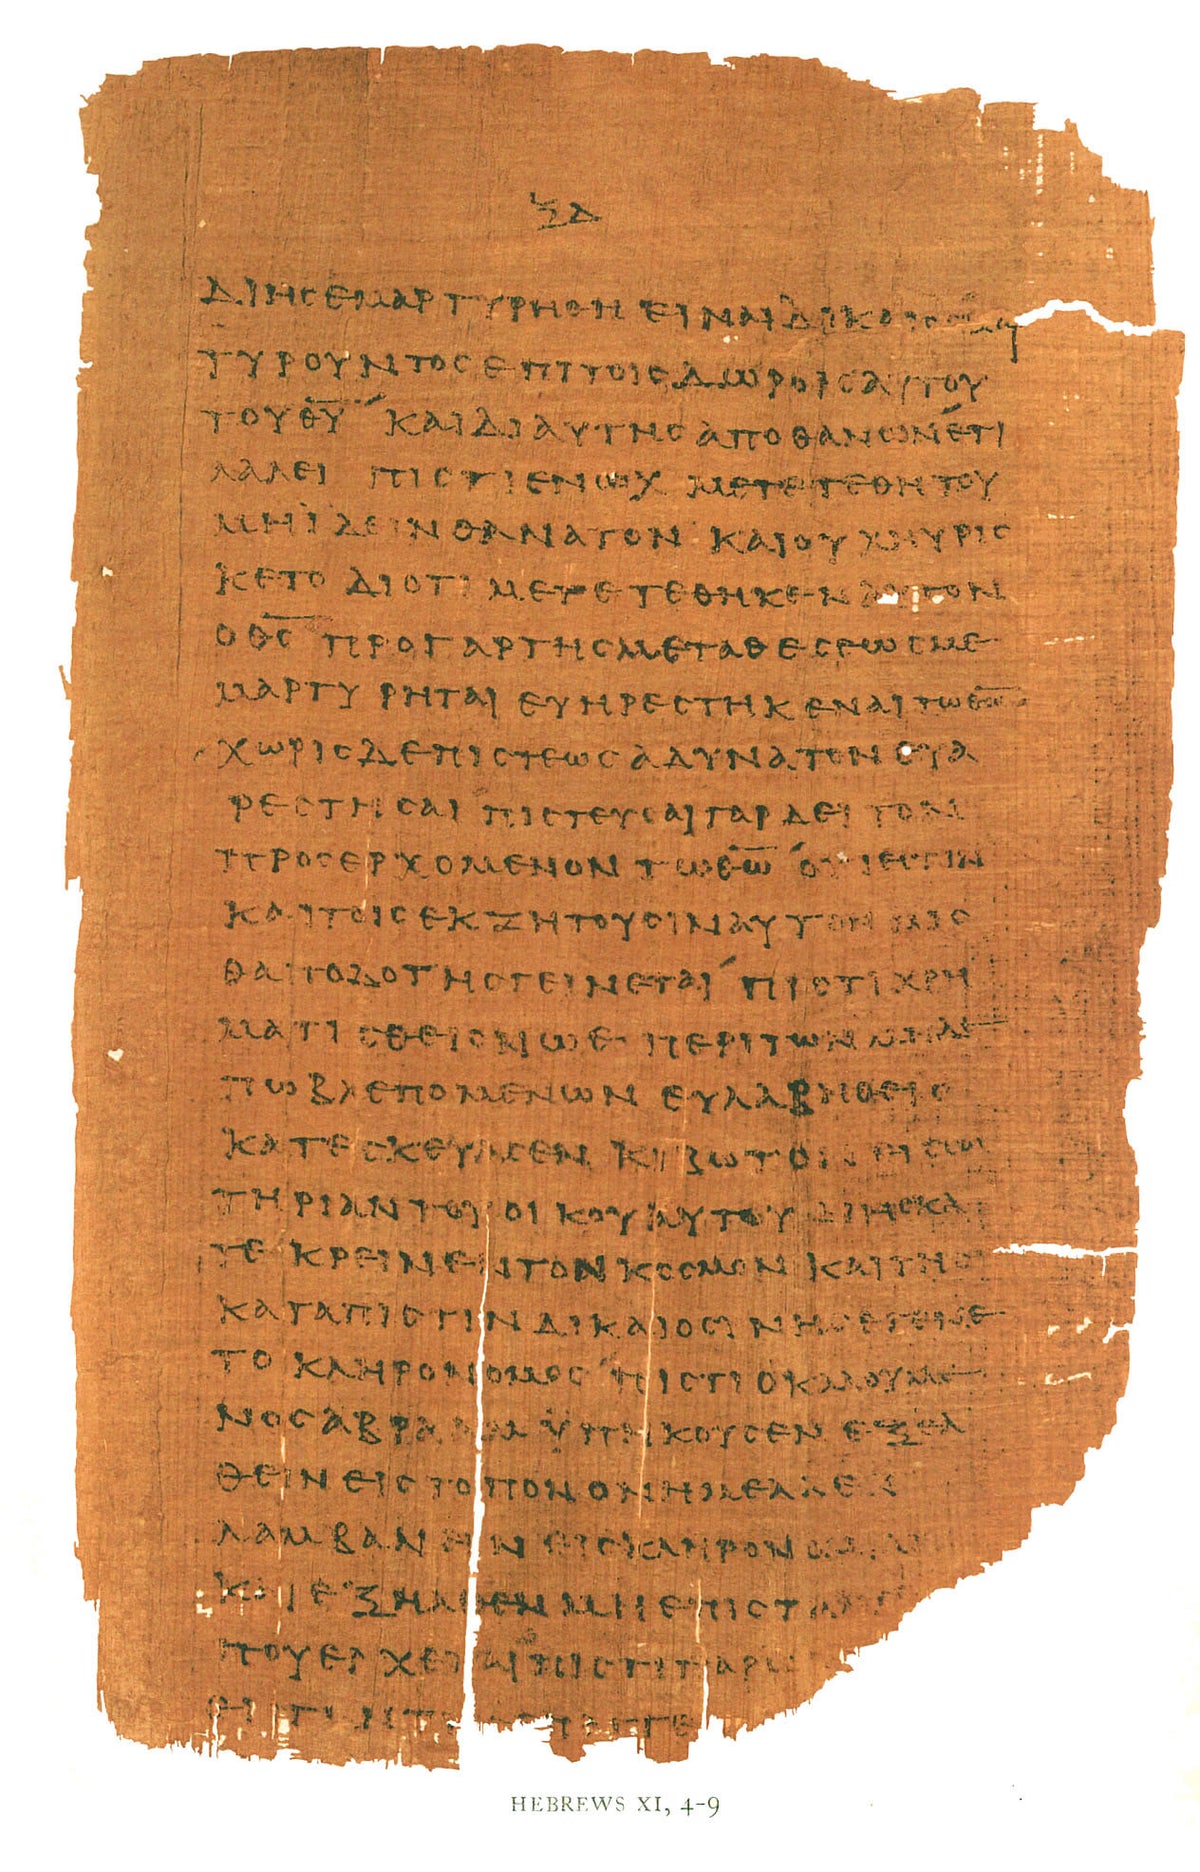 ΞΔ
ΔΙΗϹΕΜΑΡΤΥΡΗΘΗ ΕΙΝΑΙ ΔΙΚΑΙΟϹ ΜΑΡ
ΤΥΡΟΥΝΤΟϹ ΕΠΙ ΤΟΙϹ ΔΩΡΟΙϹ ΑΥΤΟΥ
ΤΟΥ Θ̅Υ̅ ΚΑΙ ΔΙ ΑΥΤΗϹ ΑΠΟΘΑΝΩΝ ΕΤΙ
ΛΑΛΕΙ ΠΙϹΤΙ ΕΝΩΧ ΜΕΤΕΤΕΘΗ ΤΟΥ
ΜΗ ΪΔΕΙΝ ΘΑΝΑΤΟΝ ΚΑΙ ΟΥΧ ΗΥΡΙϹ
ΚΕΤΟ ΔΙΟΤΙ ΜΕΤΕΤΕΘΗΚΕΝ ΑΥΤΟΝ
Ο Θ̅Ϲ̅ ΠΡΟ ΓΑΡ ΤΗϹ ΜΕΤΑΘΕϹΕΩϹ ΜΕ
ΜΑΡΤΥΡΗΤΑΙ ΕΥΗΡΕϹΤΗΚΕΝΑΙ ΤΩ Θ̅Ω̅
ΧΩΡΙϹ ΔΕ ΠΙϹΤΕΩϹ ΑΔΥΝΑΤΟΝ ΕΥΑ
ΡΕϹΤΗϹΑΙ ΠΙϹΤΕΥϹΑΙ ΓΑΡ ΔΕΙ ΤΟΝ
ΠΡΟϹΕΡΧΟΜΕΝΟΝ ΤΩ Θ̅Ω̅ ΟΤΙ ΕϹΤΙΝ
ΚΑΙ ΤΟΙϹ ΕΚΖΗΤΟΥϹΙΝ ΑΥΤΟΝ ΜΙϹ
ΘΑΠΟΔΟΤΗϹ ΓΕΙΝΕΤΑΙ ΠΙϹΤΙ ΧΡΗ
ΜΑΤΙϹΘΕΙϹ ΝΩΕ ΠΕΡΙ ΤΩΝ ΜΗΔΕ
ΠΩ ΒΛΕΠΟΜΕΝΩΝ ΕΥΛΑΒΗΘΕΙϹ
ΚΑΤΕϹΚΕΥΑϹΕΝ ΚΙΒΩΤΟΝ ΕΙϹ ϹΩ
ΤΗΡΙΑΝ ΤΟΥ ΟΙΚΟΥ ΑΥΤΟΥ ΔΙ ΗϹ ΚΑ
ΤΕΚΡΕΙΝΕΝ ΤΟΝ ΚΟϹΜΟΝ ΚΑΙ ΤΗϹ
ΚΑΤΑ ΠΙϹΤΙΝ ΔΙΚΑΙΟϹΥΝΗϹ ΕΓΕΝΕ
ΤΟ ΚΛΗΡΟΝΟΜΟϹ ΠΙϹΤΙ Ο ΚΑΛΟΥΜΕ
ΝΟϹ ΑΒΡΑΑΜ ΫΠΗΚΟΥϹΕΝ ΕΞΕΛ
ΘΕΙΝ ΕΙϹ ΤΟΠΟΝ ΟΝ ΗΜΕΛΛΕΝ
ΛΑΜΒΑΝΕΙΝ ΕΙϹ ΚΛΗΡΟΝΟΜΙΑΝ
ΚΑΙ ΕΞΗΛΘΕΝ ΜΗ ΕΠΙϹΤΑΜΕ
ΠΟΥ ΕΡΧΕΤΑΙ ΠΙϹΤΙ ΠΑΡΩ
HEBREWS XI, 4-9